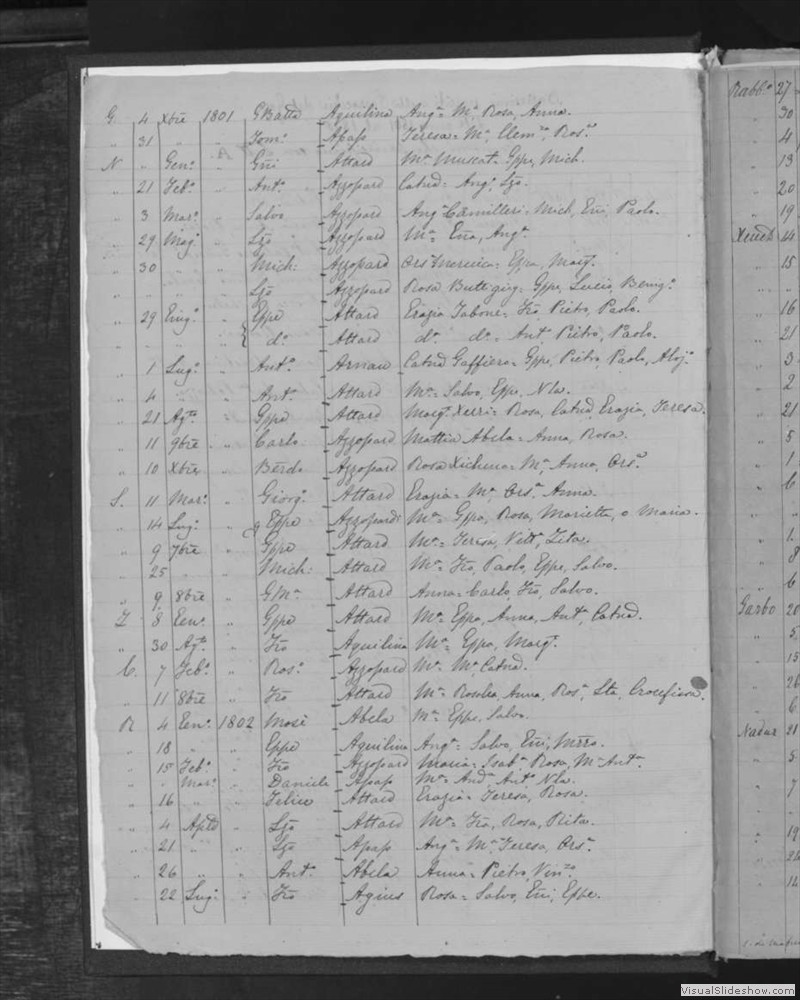 G. 4 Xbre 1801 GBatta Aquilina Angª = Mª Rosa, Anna.
" 31 " " Tomº Apap Teresa = Mª Clemª, Rosª
N " Genº " Gni Attard Mª Muscat = Gppe, Mich.
" 21 Febº " Antº " Azzopard Catud = Angº, Lzo.
" 3 Marº " Salvo Azzopard Angª Camilleri = Mich, Eni, Paolo.
" 29 Magº " Lzo Azzopard Mª = Ena, Angª
" 30 " " Mich: Azzopard Orsª = Eppa, Margª.
" " " " Lzo Azzopard Rosa Buttigieg = Gppe, Lucia, Benigº
" 29 Eiugº " Gppe Attard Erazia Tabone = Fco, Pietro, Paolo.
" " " { dº Attard dº dº = Antº Pietro, Paolo.
" 1 Lugº " Antº Arnau Catud Gaffiero = Gppe, Pietro, Paolo, Alojº
" 4 " " Antº Attard Mª = Salvo, Eppe, Nla.
" 21 Agto " Gppe Attard Margª Xerri = Rosa, Catud, Erazia, Teresa.
" 11 9bre " Carlo Azzopard Mattia Abela = Anna, Rosa.
" 10 Xbre " Berdo Azzopard Rosa = Mª Anna, Orsª
S. 11 Marº " Giorgº Attard Erazia = Mª Orsª Anna.
" 14 Lugº " Eppe Azzopardi Mª = Gppa, Rosa, Marietta, o Maria.
" 9 7bre " Gppe Attard Mª = Teresa, Vittª, Zita.
" 25 " " Mich: Attard Mª = Fco, Paolo, Eppe, Salvo.
" 9 8bre " GMª Attard Anna = Carlo, Fco, Salvo.
Z 8 Eenº " Gppe Attard Mª = Eppa, Anna, Antª, Catud.
" 30 Agto " Fco Aquilina Mª = Eppa, Margª.
C. 7 Febº " Rosº Azzopard Mª = Mª Catud.
" 11 8bre " Fco Attard Mª = Rosolea, Anna, Rosª, Sta, Crocifissa.
R 4 Eenº 1802 Mosè Abela Mª = Eppe, Salvo.
" 18 " " Eppe Aquilina Angª = Salvo, Eni,
" 15 Febº " Fco Azzopard Maria = Isabª Rosa, Mª Antª
" " Marº " Daniele Apap Mª = Andª, Antº Nla.
" 16 " " Felice Attard Erazia = Teresa, Rosa.
" 4 Aple " Lzo Attard Mª = Fco, Rosa, Rita.
" 21 " " Lzo Apap Angª = Mª Teresa, Orsª
" 26 " " Antº Abela Anna = Pietro, Vinzº
" 22 Lugº " Fco Agius Rosa = Salvo, Eni, Eppe.
Rabbº 27
" 30
" 4
" 13
" 20
" 19
14
" 15
" 16
" 21
" 3
" 2
" 21
" 5
" 1
" 6
" "
" 1
" 8
" 6
Garbo 20
" 5
" 15
" 26
" 6
Nadur 21
" 5
" 7
" "
" 19
" 12
VisualSlideshow.com